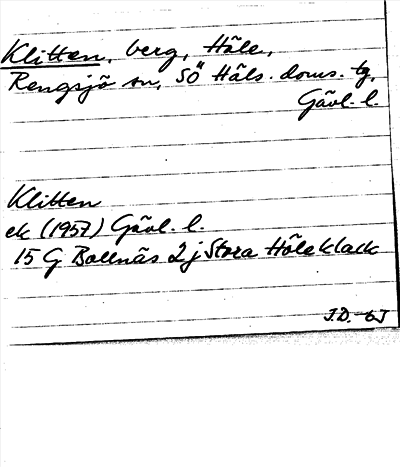 Klitten, berg, Håle,
Rengsjö sn, SÖ Häls. doms. tg,
Gävl. l.
Klitten
ek (1957) Gävl. l.
15 G Bollnäs 2 j Stora Höleklack
J.D. -65